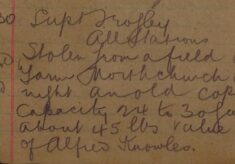 30 Supt Frogley
All Stations
Stolen from a field
Farm Northchurch
night an old cop
Capacity 24 to 30 ga
about 45 lbs value
of Alfred Knowles.